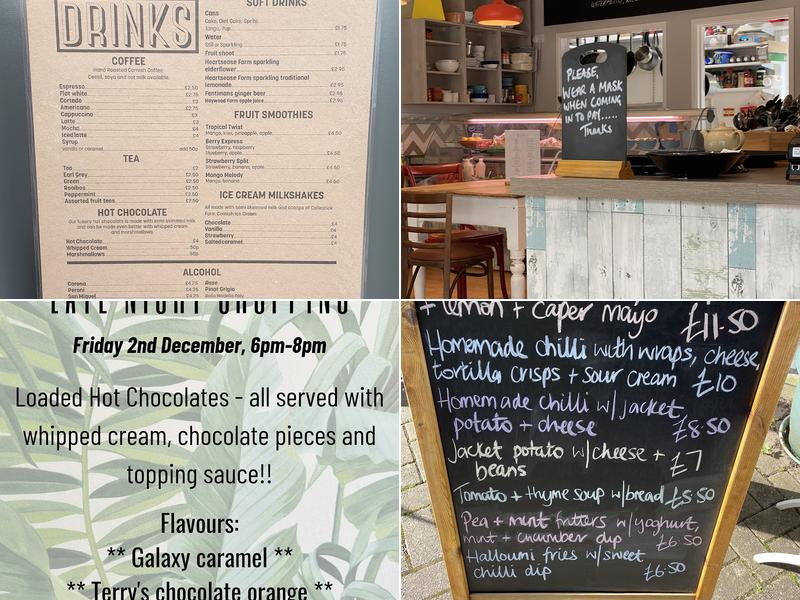 DRINKS
COFFEE
Hand Roasted Cornish Coffee
Decaf, soya and oat milk available.
Espresso £2.50
Flat white £2.75
Cortado £3
Americano £2.75
Cappuccino £3
Latte £3
Mocha £4
Iced latte £4
Syrup
vanilla or caramel add 50p
TEA
Tea £2
Earl Grey £2.50
Green £2.50
Rooibos £2.50
Peppermint £2.50
Assorted fruit teas £2.50
HOT CHOCOLATE
Our luxury hot chocolate is made with semi skimmed milk
and can be made even better with whipped cream
and marshmallows.
Hot Chocolate £4
Whipped Cream 50p
Marshmallows 50p
SOFT DRINKS
Cans
Coke, Diet Coke, Sprite,
Tango, 7up £1.75
Water
Still or Sparkling £1.75
Fruit shoot £1.75
Heartsease Farm sparkling
elderflower £2.95
Heartsease Farm sparkling traditional
lemonade £2.95
Fentimans ginger beer £2.95
Haywood Farm apple juice £2.95
FRUIT SMOOTHIES
Tropical Twist
Mango, kiwi, pineapple, apple £4.50
Berry Express
Strawberry, raspberry
blueberry, apple £4.50
Strawberry Split
Strawberry, banana, apple £4.50
Mango Melody
Mango, banana £4.50
ICE CREAM MILKSHAKES
All made with semi skimmed milk and scoops of Callestick
Farm Cornish Ice Cream
Chocolate £4
Vanilla £4
Strawberry £4
Salted caramel £4
ALCOHOL
Corona £4.25
Peroni £4.25
San Miguel £4.25
Rose
Pinot Grigio
PLEASE,
WEAR A MASK
WHEN COMING
IN TO PAY.....
Thanks
LATE NIGHT SHOPPING
Friday 2nd December, 6pm-8pm
Loaded Hot Chocolates - all served with
whipped cream, chocolate pieces and
topping sauce!!
Flavours:
** Galaxy caramel **
** Terry's chocolate orange **
+ lemon + caper mayo £11.50
Homemade chilli with wraps, cheese,
tortilla crisps + sour cream £10
Homemade chilli w/jacket
potato + cheese £8.50
Jacket potato w/cheese +
beans £7
Tomato + thyme soup w/bread £5.50
Pea + mint fritters w/yoghurt,
mint + cucumber dip £6.50
Halloumi fries w/sweet
chilli dip £6.50